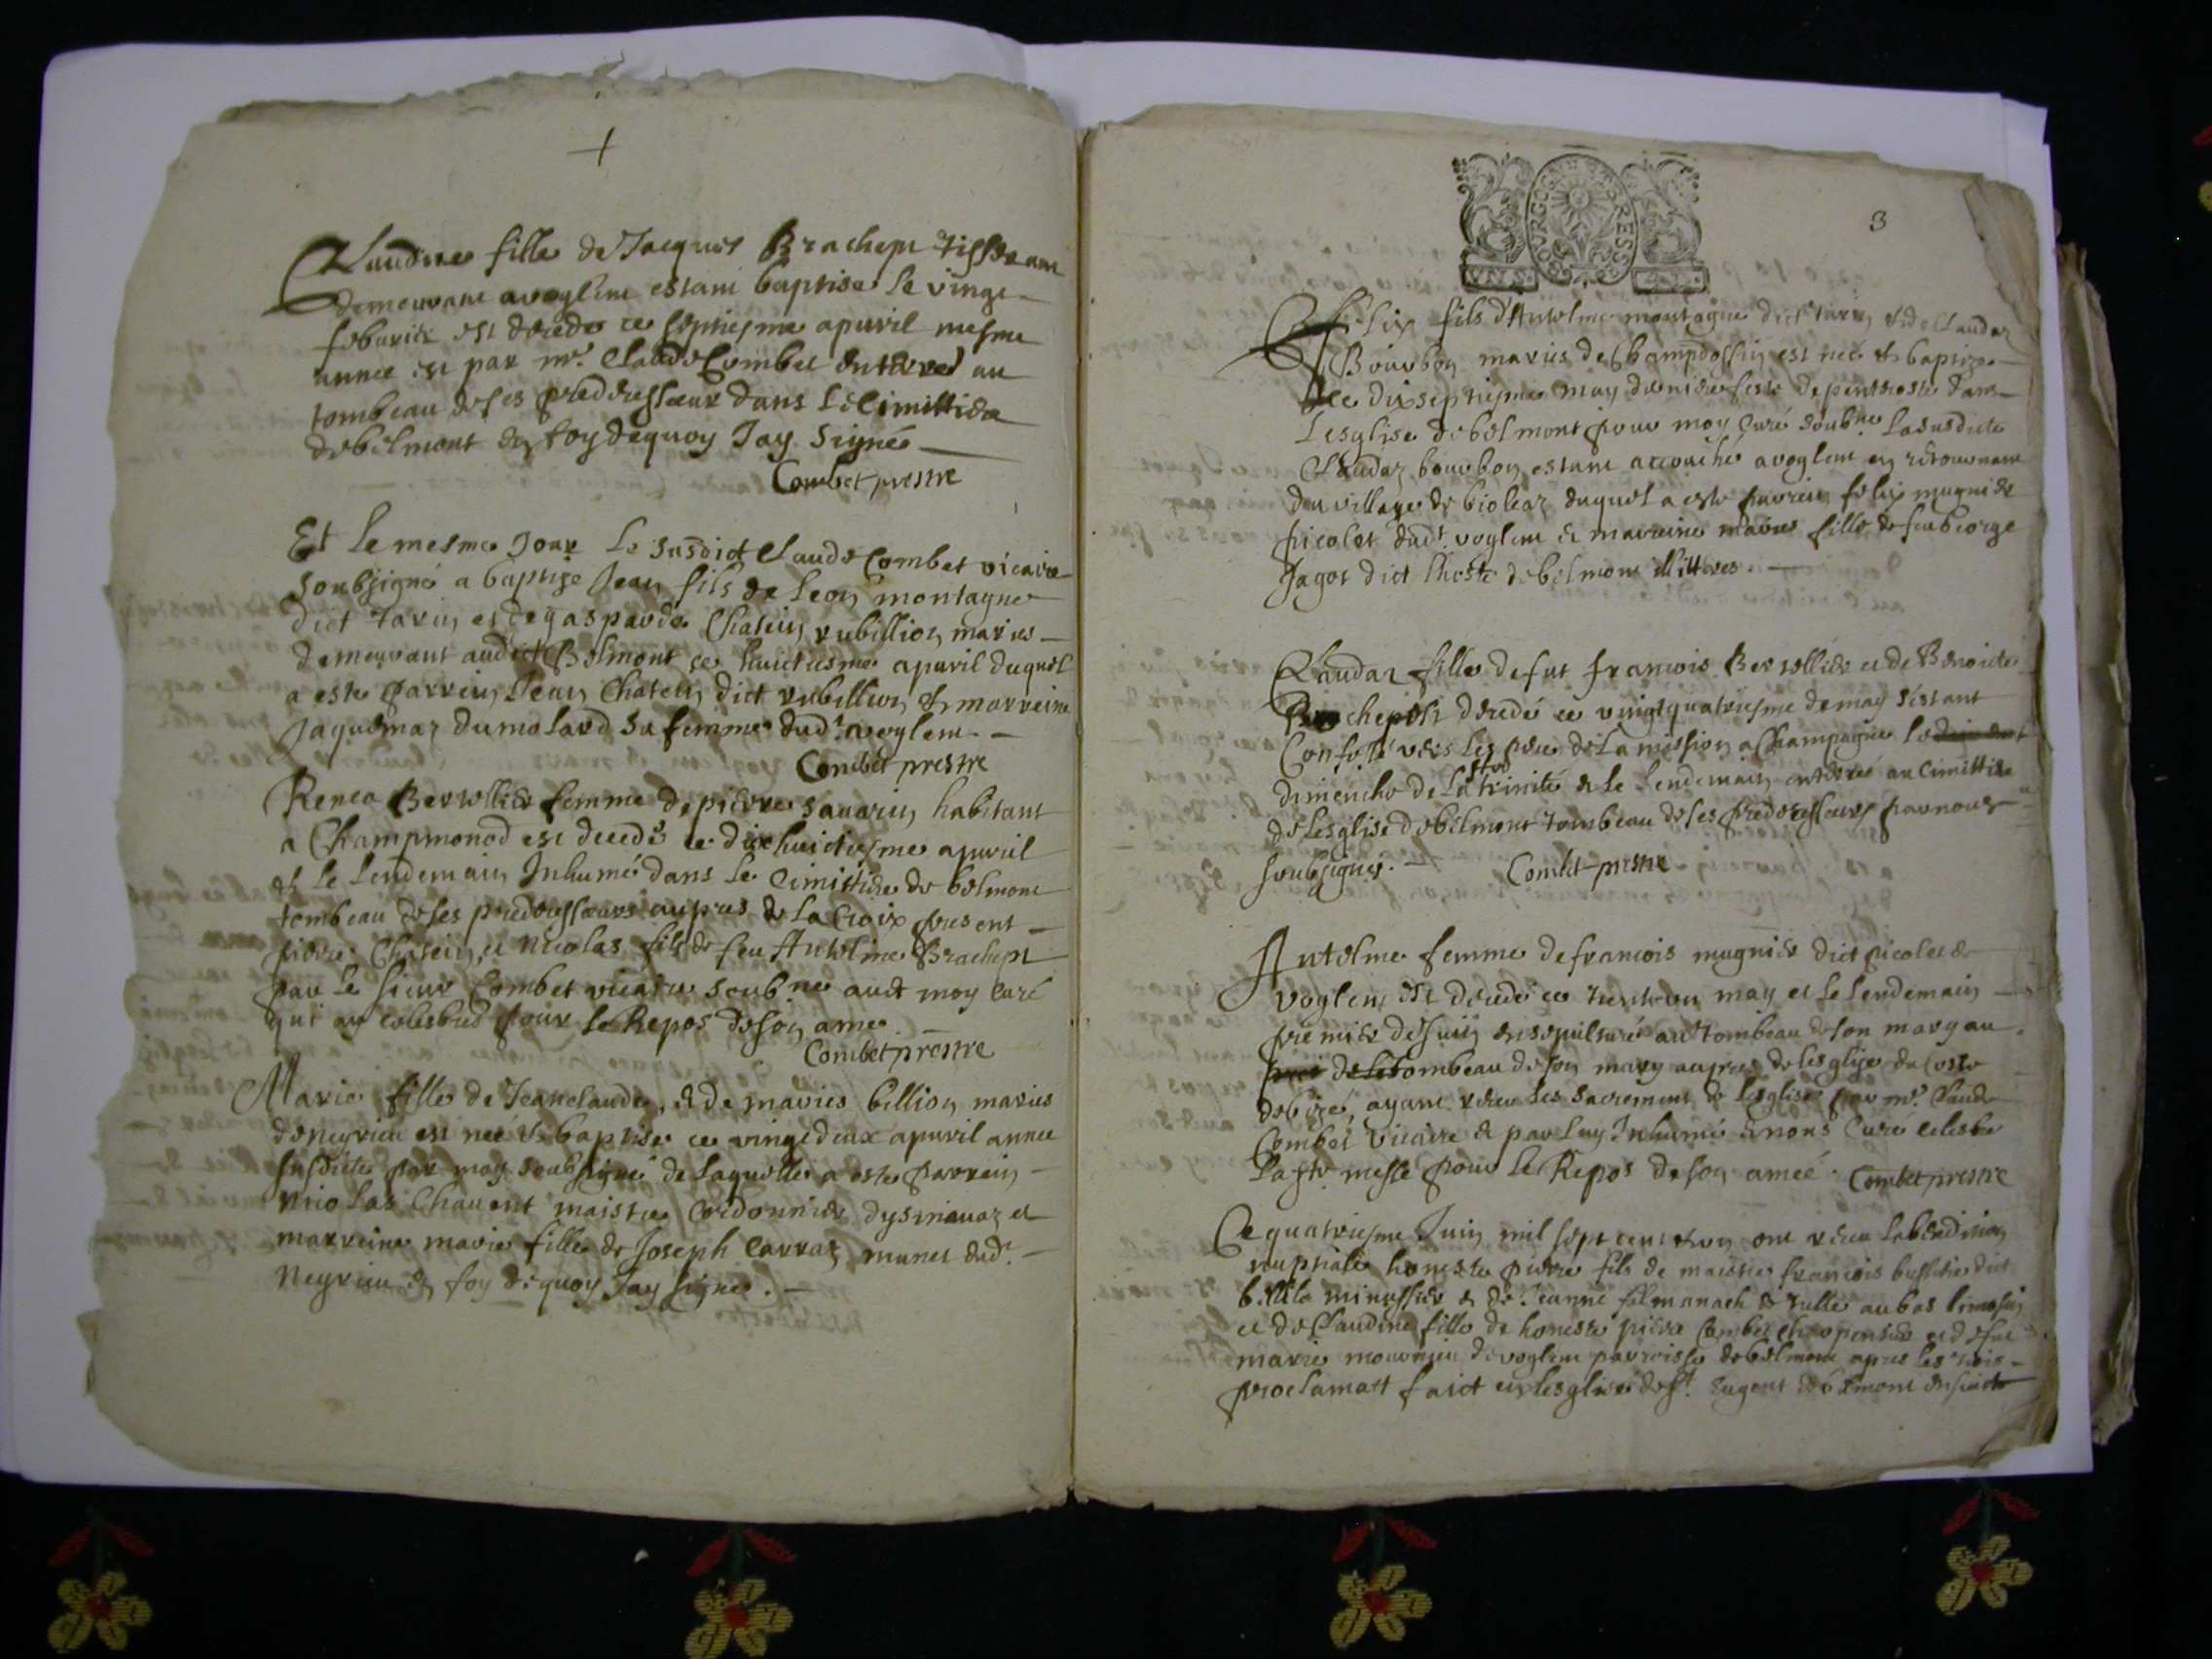 +
Claudine fille de Jacques Brachept tisseran
demeurant a voglem estant baptisée le vingt
febvrier est decedé ce septiesme apuril mesme
annee est par mre. Claude Combet enterré au
tombeau de ses predecesseur dans le cimittiere
de belmont en foy dequoy Jay signé
Combet prestre
Et le mesme Jour le susdict Claude Combet vicaire
soubsigné a baptizé Jean fils de leon montagne
dict tarin et de gasparde Chatein rubillion mariés
demeurant audict Belmont ce huictiesme apuril duquel
a este parrein Jean Chatein dict rubillion et marreine
Jaquemaz dumolard sa femme dudt. voglem
Combet prestre
Renea Bertollier femme de pierre savarin habitant
a Champmonod est decedé ce dixhuictiesme apuril
et le lendemain Inhumé dans le Cimittiere de belmont
tombeau de ses predecesseurs aupres de la Croix present
pierre Chatein et nicolas fils de feu Antelme Brachept
par le sieur Combet vicaire soubne avec moy Curé
qui ay celebré pour le Repos de son ame
Combet prestre
Marie fille de Jeanclaude, et de maries billion mariés
de neyrieu est née et baptisée ce vingtdeux apuril annee
susdicte par moy soubsigné de laquelle a este parrein
nicolas Chavent maistre Cordonnier dysinavaz et
marreine marie fille de Joseph Carraz munet dudt.
neyrieu en foy dequoy Jay signé.
3
Felix fils d'Antelme montagne dict tarin et de Claudaz
Bourbon mariés de Champdossin est neé et baptizé
le dixseptiesme may derniere feste de pentecoste dans
Lesglise de belmont par moy Curé soubne la susdicte
Claudaz bourbon estant accouché a voglem en retournant
du village de bioleaz duquel a este parrein felix mugnier
picolet dudt. voglem et marreine marie fille de feu george
Jagot dict lhoste de belmont illitteres.
Claudaz fille de fut francois Bertollier et de Benoicte
Brachept est decedé ce vingtquatriesme de may sestant
Confessé vers les peres de la mission a Champagne le
dimenche de la ste trinité et le lendemain enterré au cimittiere
de lesglise de belmont tombeau de ses predecesseurs par nous
soubsignés. Combet prestre
Antelme femme de francois mugnier dict picolet de
voglem est decedé ce trente un may et le lendemain
premier de Juin ensepulturé au tombeau de son mary au
de le tombeau de son mary aupres de lesglise du Costé
de bize, ayant receu les sacrements de lesglise par mre Claude
Combet vicaire et par luy Inhumé et nous Curé celebré
la ste messe pour le Repos de son ameé. Combet prestre
Ce quatriesme Juin mil sept cent trois ont receu la benediction
nuptiale honeste pierre fils de maistre francois dict
minussier et de Jeanne de tulle au bas limosin
et de Claudine fille de honeste pierre Combet Charpentier et de fut
marie de voglem parroisse de belmont apres les trois
proclamatt faict en lesglise de st. Eugent de belmont